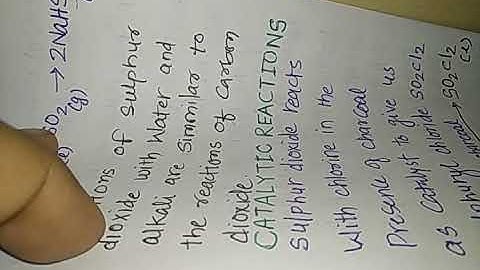 SO2 → 2NaHS
(g)
tions of sulphur
dioxide with water and
alkali are simmilar to
the reactions of carbon
dioxide.
CATALYTIC REACTIONS
Sulphur dioxide reacts
with chlorine in the
presence of charcoal
as catalyst to give us
chloride SO2Cl2
SO2Cl2
(l)